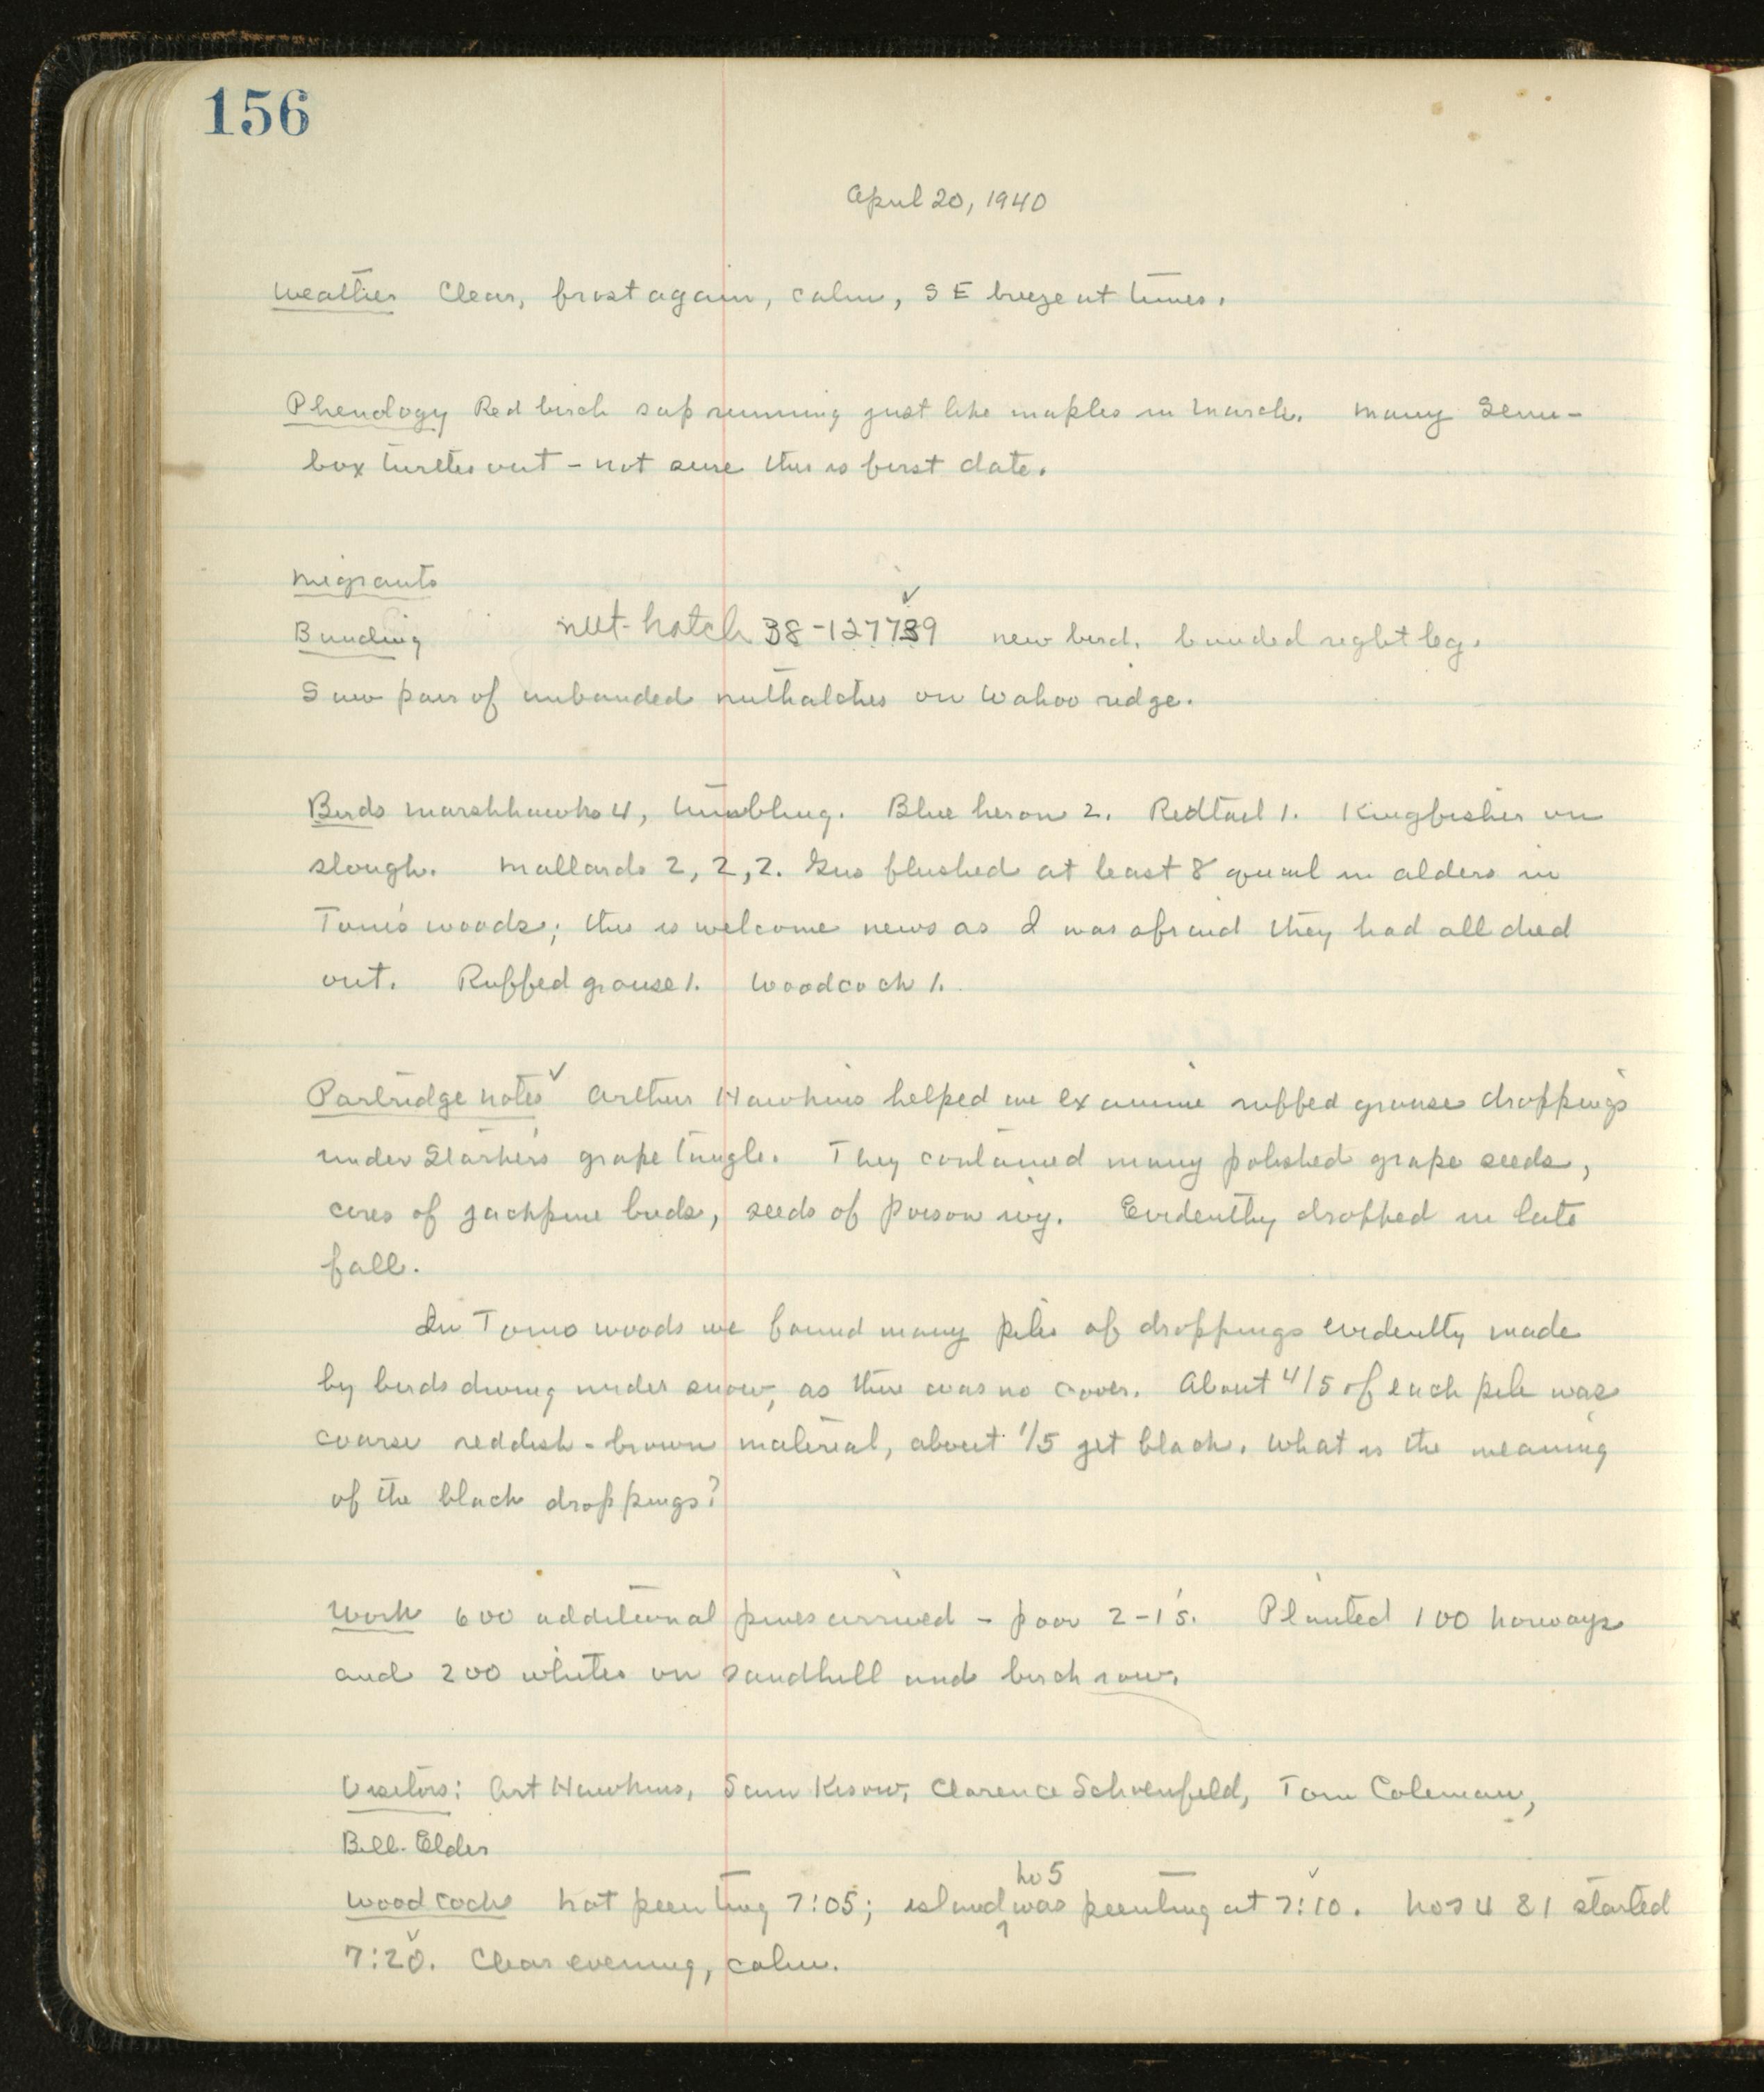 156
April 20, 1940
Weather Clear, frost again, calm, SE breeze at times.
Phenology Red birch sap running just like maples in March. Many Semi-
box turtles out - not sure this is first date.
Migrants
Banding nut-hatch 38-127739 new bird. banded right leg.
Saw pair of unbanded nuthatches on Wahoo ridge.
Birds Marshhawks 4, tumbling. Blue heron 2. Redtail 1. Kingfisher on
slough. Mallards 2, 2, 2. Gus flushed at least 8 quail in alders in
Tom's woods; this is welcome news as I was afraid they had all died
out. Ruffed grouse 1. Woodcock 1.
Partridge notes Arthur Hawkins helped me examine ruffed grouse droppings
under Starker's grape tangle. They contained many polished grape seeds,
cores of jackpine buds, seeds of poison ivy. Evidently dropped in late
fall.
In Toms woods we found many piles of droppings evidently made
by birds diving under snow, as there was no cover. About 4/5 of each pile was
coarse reddish-brown material, about 1/5 jet black. What is the meaning
of the black droppings?
Work 600 additional pines arrived - poor 2-1's. Planted 100 Norways
and 200 whites on sandhill and birch row.
Visitors: Art Hawkins, Sam Kisow, Clarence Schoenfeld, Tom Coleman,
Bill Elder
Woodcock Not peenting 7:05; island no 5 was peenting at 7:10. Nos 4 & 1 started
7:20. Clear evening, calm.